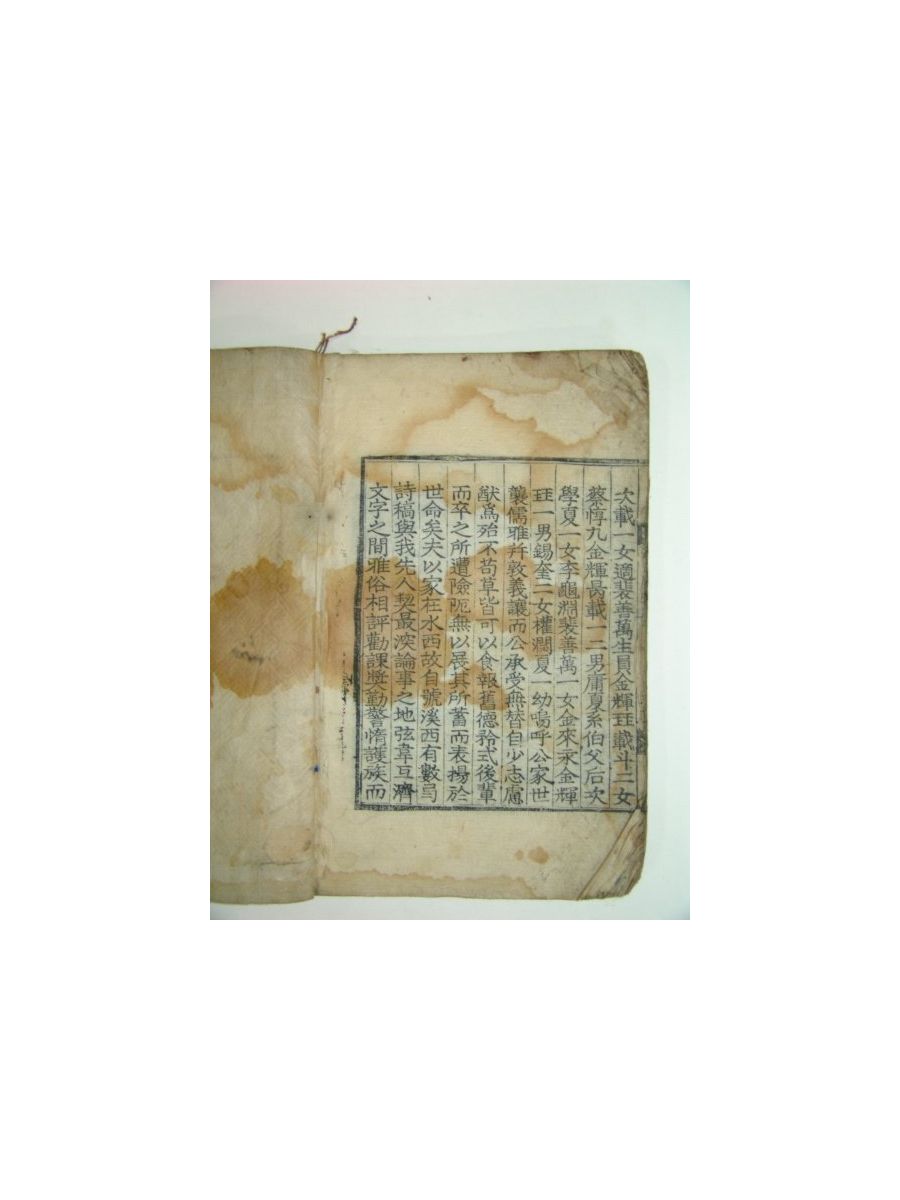 次載一女適裴善萬生員金輝玨載斗二女
蔡惇九金輝昺載一二男庸夏系伯父后次
學夏一女李龜淵裴善萬一女金來永金輝
玨一男錫奎一女權潤夏一幼嗚呼公家世
襲儒雅幷敦義讓而公承受無替自少志慮
猷爲殆不苟草皆可以食報舊德矜式後輩
而卒之所遭險阨無以展其所蓄而表揚於
世命矣夫以家在水西故自號溪西有數弓
詩稿與我先人契最深論事之地弦韋互濟
文字之間雅俗相評勸課奬勤警惰護族而